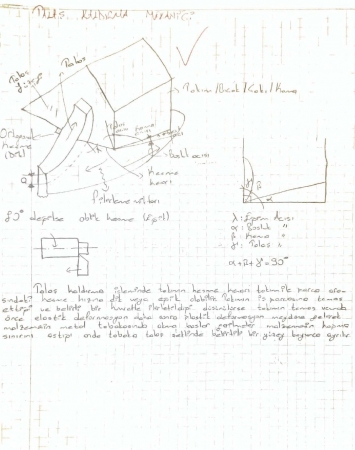 TALAŞ KALDIRMA MEKANİĞİ
Talaş
Talaş
Takım/Bıçak/Kama
Ortogonal
kesme
(Dik)
Boşluk açısı
Kesme
hızı
İlerleme vektörü
90° değilse oblik kesme (Eğik)
λ: Eğim Açısı
α: Boşluk "
β: Kama "
γ: Talaş "
α+β+γ=90°
Talaş kaldırma işleminde takımın kesme kenarı takım ile parça ara-
sındaki kesme hızına dik veya eğik olabilir. Takımın iş parçasına temas
ettiği ve belirli bir kuvvetle ilerletildiği düşünülürse takımın temas
önce elastik deformasyon daha sonra plastik deformasyon meydana gelerek
malzemenin metal tabakasında akma başlar gerilmeler malzemenin kopma
sınırını aştığı anda tabaka talaş şeklinde bir yüzey boyunca ayrılır